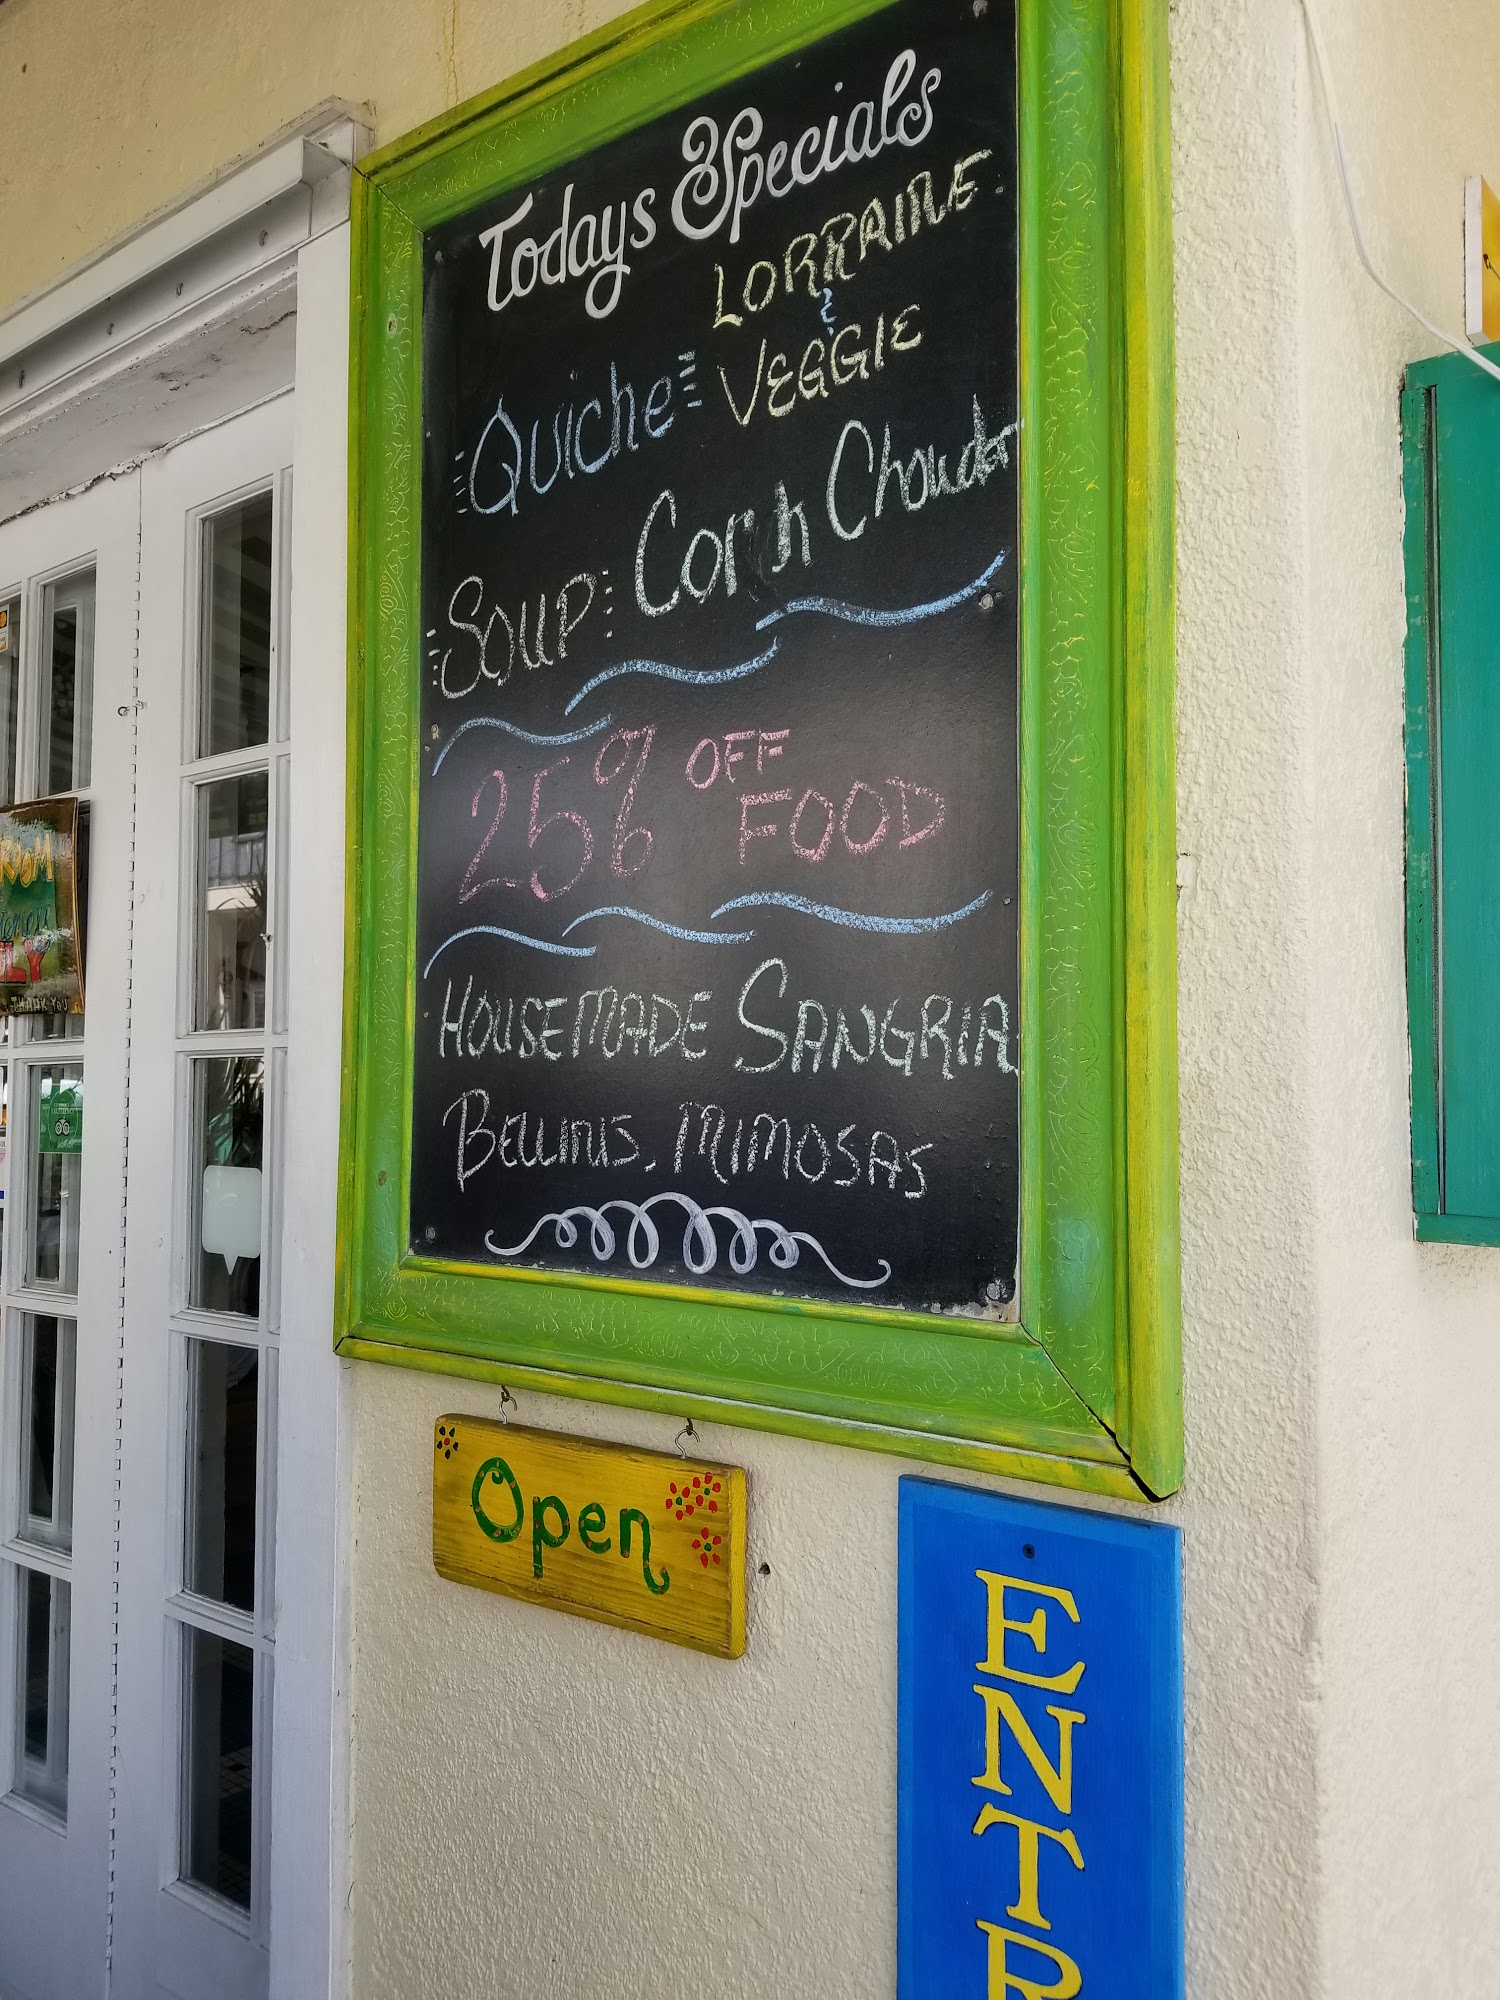 Todays Specials
LORRAINE
&
Quiche VEGGIE
Soup: Corn Chowder
25% OFF
FOOD
HOUSEMADE SANGRIA
BELLINIS, MIMOSAS
Open
ENTR
THANK YOU